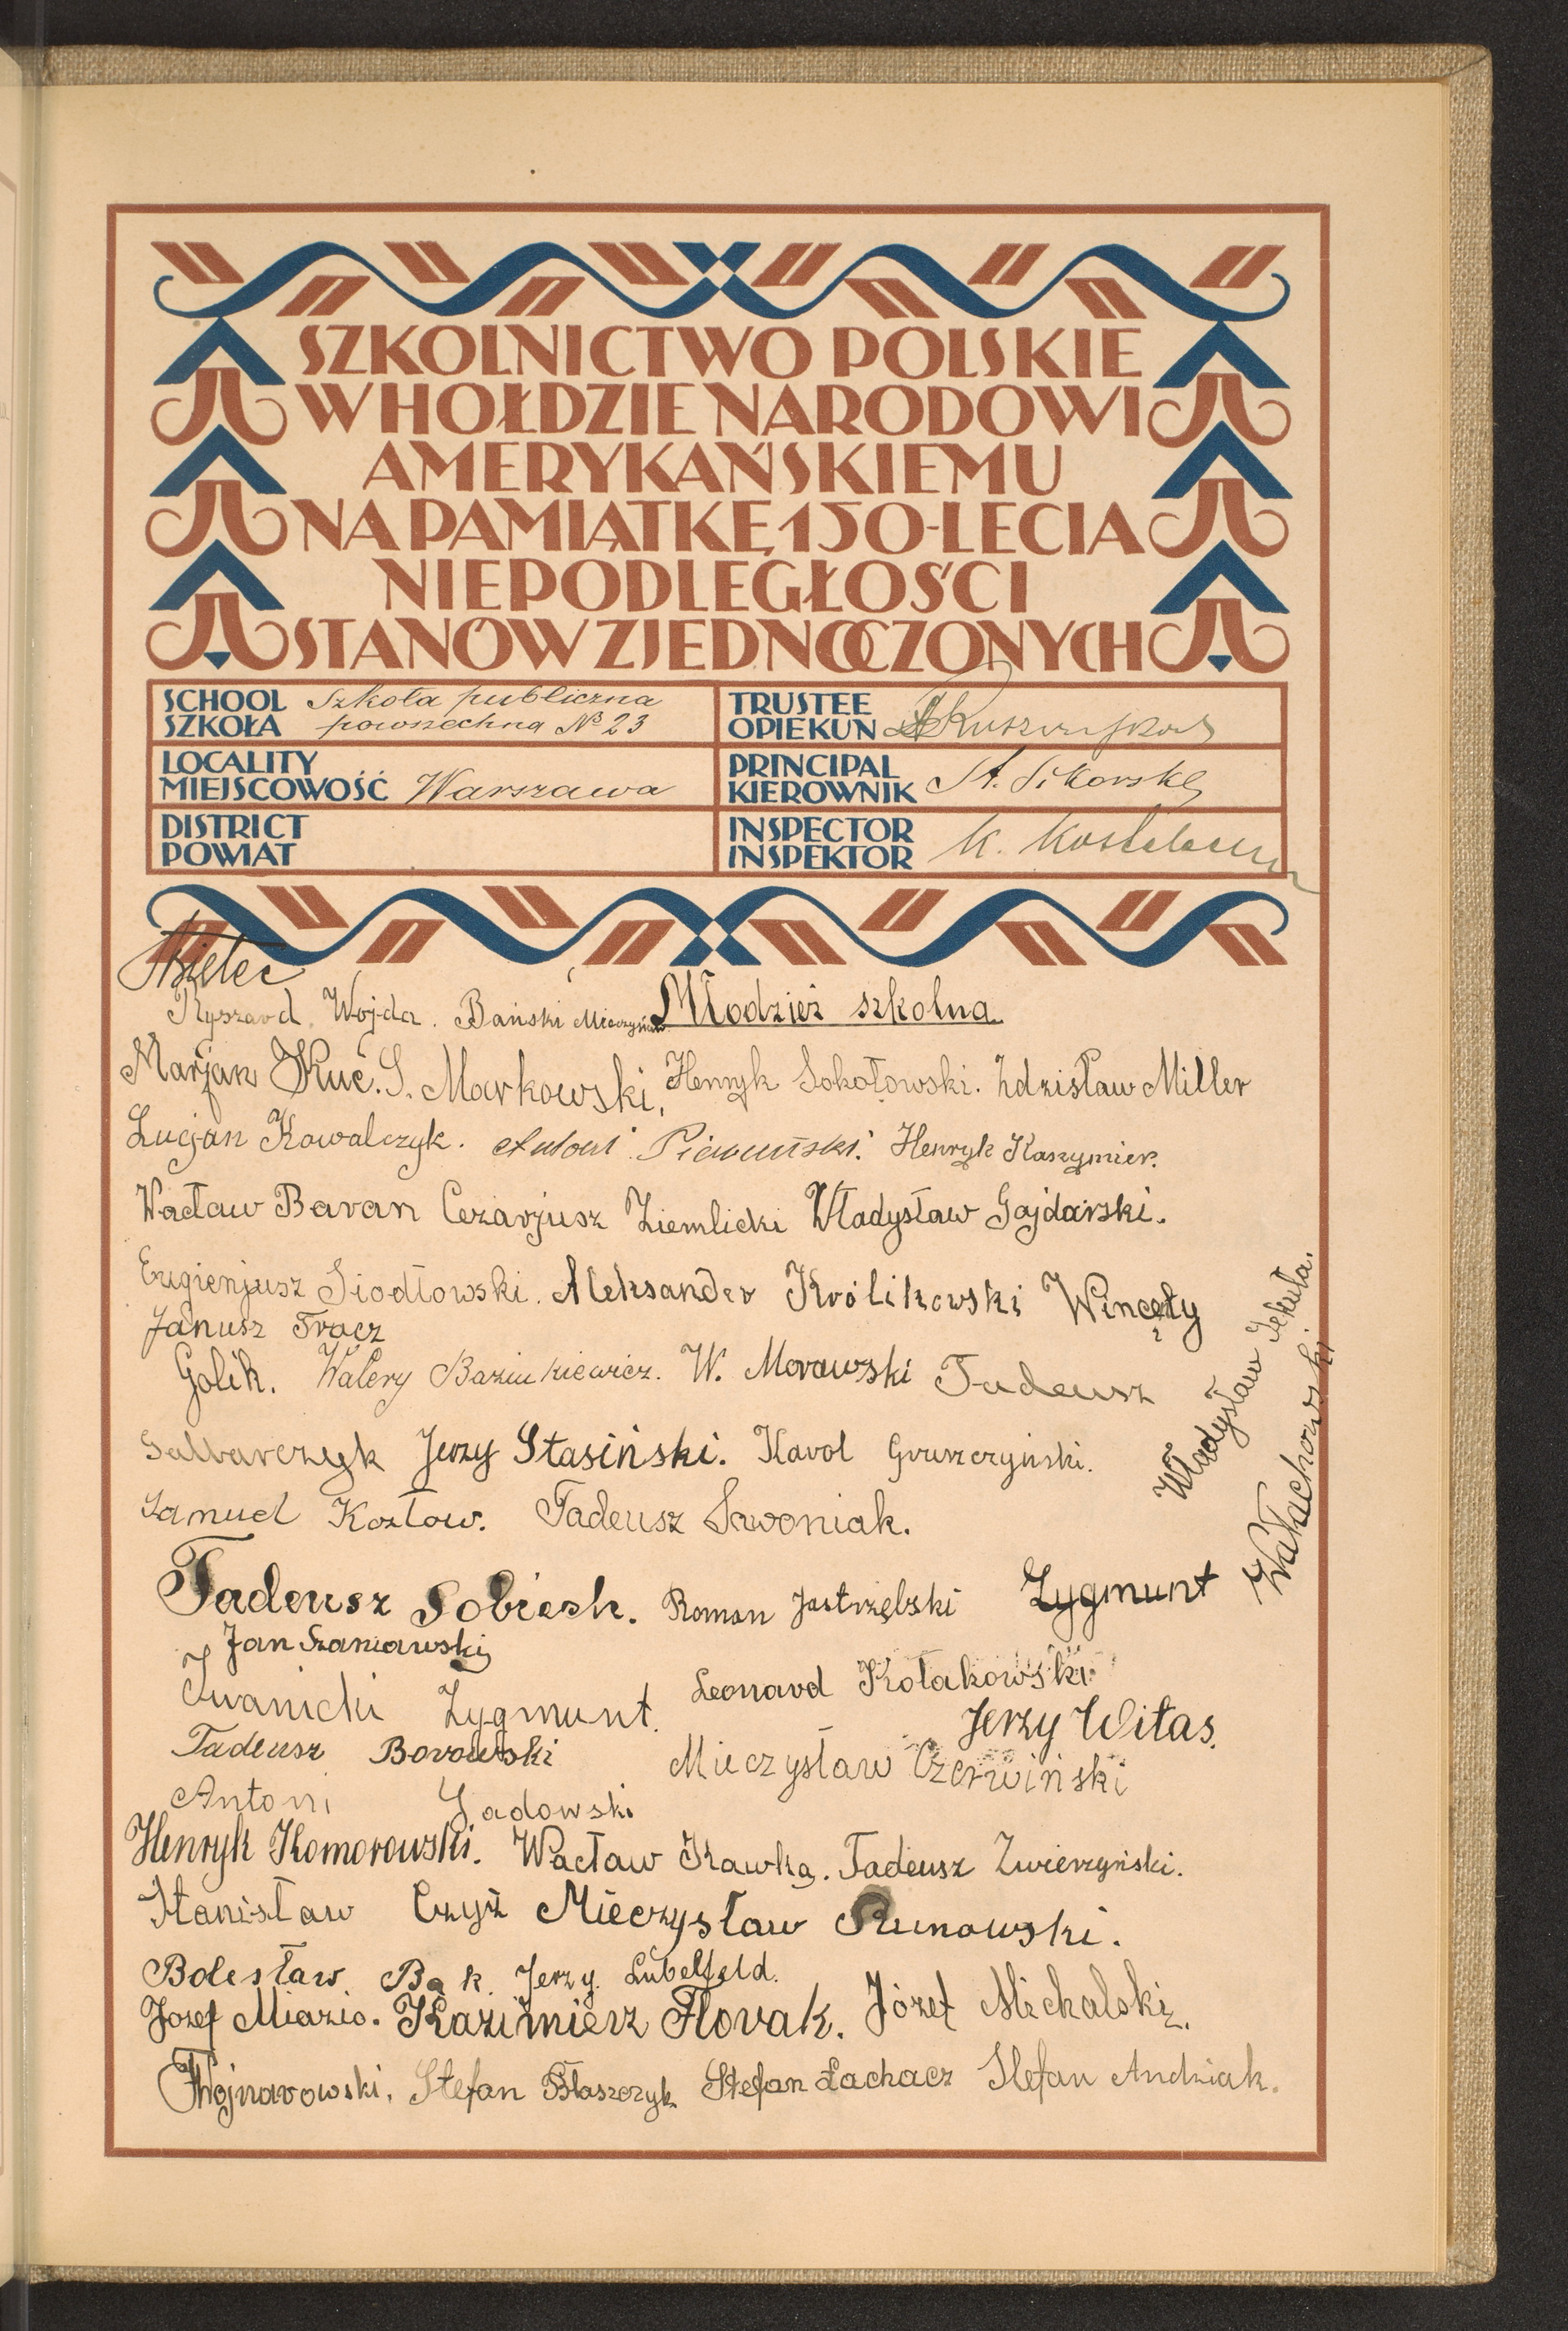 SZKOLNICTWO POLSKIE
W HOŁDZIE NARODOWI
AMERYKAŃSKIEMU
NA PAMIĄTKĘ 150-LECIA
NIEPODLEGŁOŚCI
STANÓW ZJEDNOCZONYCH
SCHOOL
SZKOŁA
Szkoła publiczna
powszechna № 23
TRUSTEE
OPIEKUN
LOCALITY
MIEJSCOWOŚĆ Warszawa
PRINCIPAL
KIEROWNIK St. Sikorski
DISTRICT
POWIAT
INSPECTOR
INSPEKTOR K.
Młodzież szkolna
Ryszard Wojda. Bański Mieczysław
Marjan Kuć. S. Markowski, Henryk Sokołowski. Zdzisław Miller
Lucjan Kowalczyk. Antoni Henryk Kaszymier.
Wacław Baran Cezarjusz Ziemlicki Władysław Gajdarski.
Eugienjusz Siodłowski. Aleksander Królikowski Wincęty
Janusz Tracz
Golik. Walery W. Morawski Tadeusz
Galbarczyk Jerzy Stasiński. Karol Gruszczyński.
Władysław Sekuła.
Samuel Kozłow. Tadeusz Sawoniak.
Tadeusz Sobiech. Roman Jastrzębski Zygmunt
Wałachowski
Jan Szaniawski
Iwanicki Zygmunt. Leonard Kołakowski
Jerzy Witas.
Tadeusz Borowski Mieczysław Czerwiński
Antoni Sadowski
Henryk Komorowski. Wacław Kawka. Tadeusz Zwierzyński.
Stanisław Czyż Mieczysław Runowski.
Bolesław Bąk. Jerzy Lubelfeld.
Józef Miazio. Kazimierz Flovak. Józef Michalski.
Wojnarowski. Stefan Błaszczyk Stefan Łachacz Stefan Andziak.